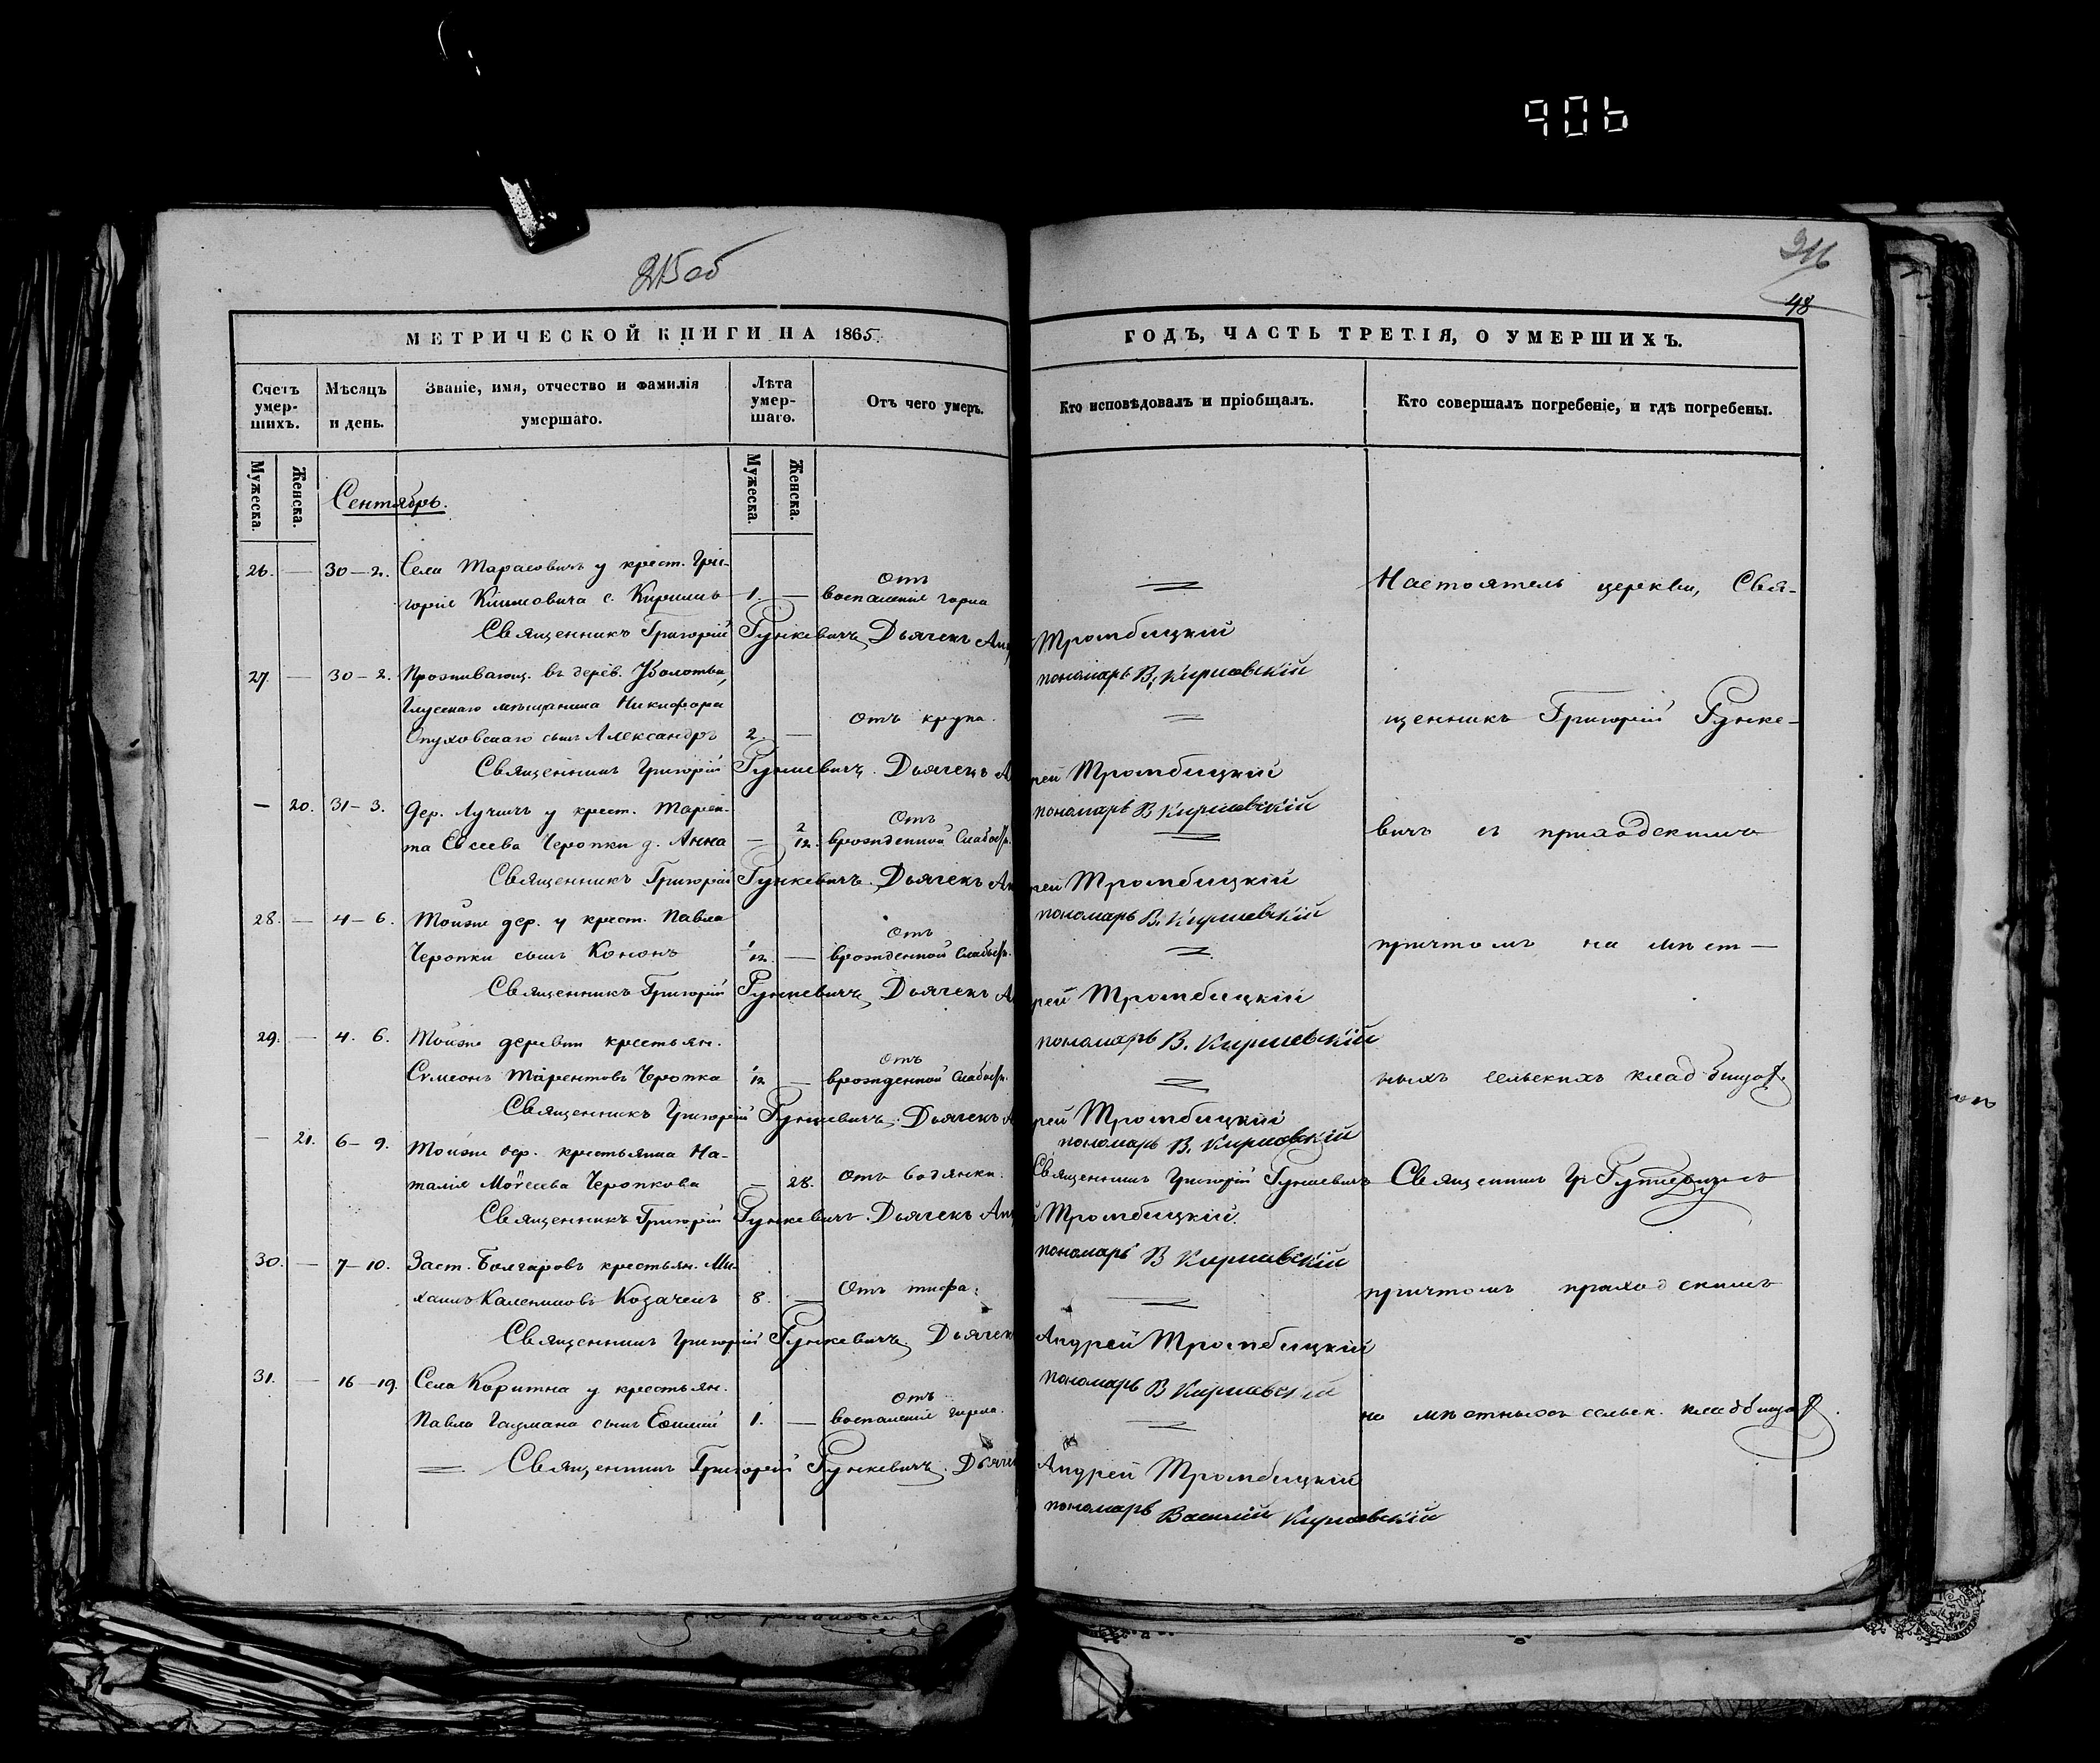 906
215об
216
48
МЕТРИЧЕСКОЙ КНИГИ НА 1865
ГОДЪ, ЧАСТЬ ТРЕТІЯ, О УМЕРШИХЪ.
Счетъ умер-шихъ.
Мѣсяцъ и день.
Званіе, имя, отчество и фамилія умершаго.
Лѣта умер-шаго.
Отъ чего умеръ.
Кто исповѣдовалъ и пріобщалъ.
Кто совершалъ погребеніе, и гдѣ погребены.
Мужеска.
Женска.
Мужеска.
Женска.
Сентябрь.
26. — 30—2. Села Тарасовичъ у крест. Гри-
горія Климовича с. Кириллъ 1. — Отъ воспаленія горла
Настоятель церкви, Свя-
Священникъ Григорій Гункевичъ, Дьячекъ Тромбицкій
27. — 30—2. Проживающ. въ дерев. Уболотьи,
пономарь В. Кирiевскій
Глусскаго мѣщанина Никифора
Опуховскаго сынъ Александръ 2. — Отъ крупа.
щенникъ Григорій Гунке-
Священникъ Григорій Гункевичъ. Дьячекъ Андрей Тромбицкій
— 20. 31—3. Дер. Лучичъ у крест. Тарен-
пономарь В Кирiевскій
та Евсеева Черопки д. Анна — 2/12. Отъ врожденной слабости.
вичъ съ приходскимъ
Священникъ Григорій Гункевичъ. Дьячекъ Андрей Тромбицкій
28. — 4—6. Тойже дер. у крест. Павла
пономарь В. Кирiевскій
Черопки сынъ Кононъ 1/12. — Отъ врожденной слабости.
причтомъ на мѣст—
Священникъ Григорій Гункевичъ, Дьячекъ Андрей Тромбицкій
29. — 4. 6. Тойже деревни крестьян.
пономарь В. Кирiевскій
Сѵмеонъ Тарентовъ Черопка 1/12 — Отъ врожденной слабости.
ныхъ сельскихъ кладбищах.
Священникъ Григорій Гункевичъ. Дьячекъ Андрей Тромбицкій
— 21. 6—9. Тойже дер. крестьянка На-
пономарь В. Кирiевскій
талія Моѵсеева Черопкова — 28. Отъ водянки.
Священникъ Григорій Гункевичъ
Священникъ Гр Гункевичъ съ
Священникъ Григорій Гункевичъ. Дьячекъ Тромбицкій.
30. — 7—10. Заст. Болгаровъ крестьян. Ми-
пономарь В Кирiевскій
хаилъ Калениковъ Козачекъ 8. — Отъ тифа.
причтомъ приходскимъ
Священникъ Григорій Гункевичъ. Дьячекъ Андрей Тромбицкій
31. — 16—19. Села Коритна у крестьян.
пономарь В Кирiевскій
Павла Гацмана сынъ 1. — Отъ воспаленія горла.
на мѣстныхъ сельск. кладбищах.
Священникъ Григорій Гункевичъ. Дьячекъ Андрей Тромбицкій
пономарь Василій Кирiевскій